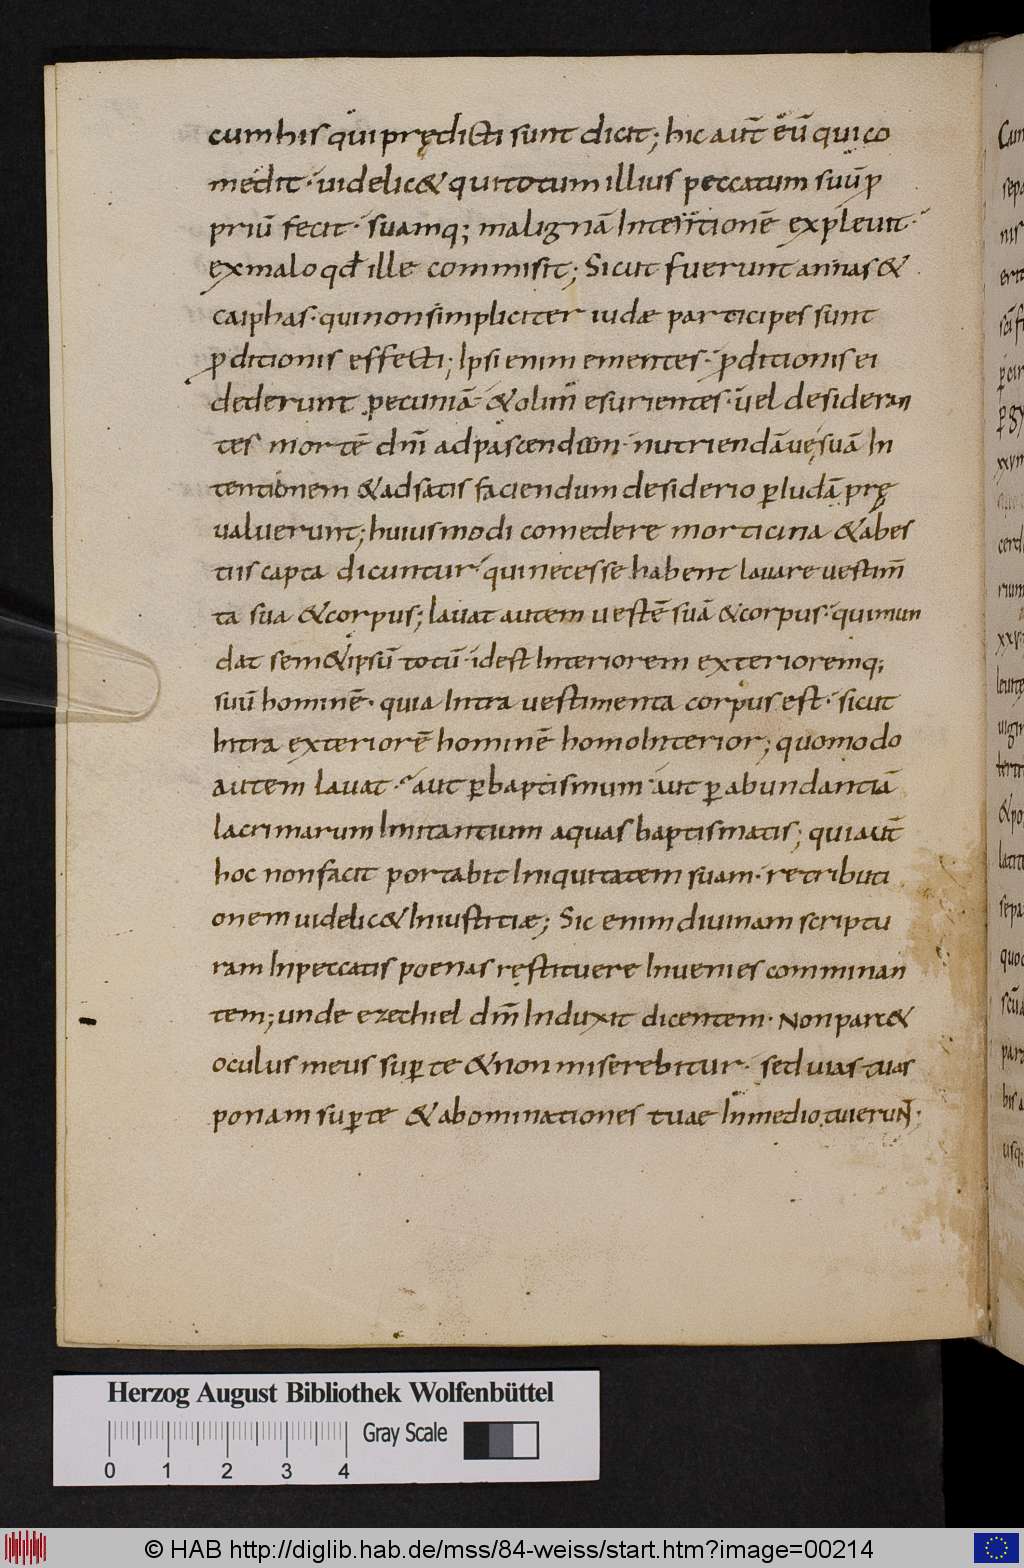 cumhis qui prędicti sunt dicit; hic aut̄ eū qui co
medit · uidelic& qui totum illius peccatum suū ꝓ
priū fecit · suamq; malignā Intentionē expleuit ·
exmalo qd̄ ille commisit; Sicut fuerunt annas &
caiphas · qui non simpliciter iudæ participes sunt
ꝓditionis effecti; Ipsi enim ementes · ꝓditionis ei
dederunt pecuniā · & olim esurientes · uel desideran
tes mortē dn̄i ad pascendum · nutriendāuę suā In
tentionem & ad satis faciendum desiderio ꝑ Iudā prę
ualuerunt; huiusmodi comedere morticina & abes
tiis capta dicuntur · qui necesse habent lauare uestim̄
ta sua & corpus; lauat autem uestē suā & corpus · qui mun
dat sem&ipsū totū · idest Interiorem exterioremq;
suū hominē · quia Intra uestimenta corpus est · sicut
Intra exteriorē hominē homo Interior; quomodo
autem lauat · aut ꝑ baptismum · aut ꝑ abundantiā
lacrimarum Imitantium aquas baptismatis; qui aut̄
hoc non facit portabit Iniquitatem suam · retributi
onem uidelic& Iniustitiæ; Sic enim diuinam scriptu
ram Inpeccatis poenas ręstituere Inuenies comminan
tem; unde ezechiel dn̄m Induxit dicentem · Non parc&
oculus meus suꝑ te & non miserebitur · sed uias tuas
ponam suꝑ te & abominationes tuae In medio tui erunt ·
Herzog August Bibliothek Wolfenbüttel
Gray Scale
0 1 2 3 4
© HAB http://diglib.hab.de/mss/84-weiss/start.htm?image=00214